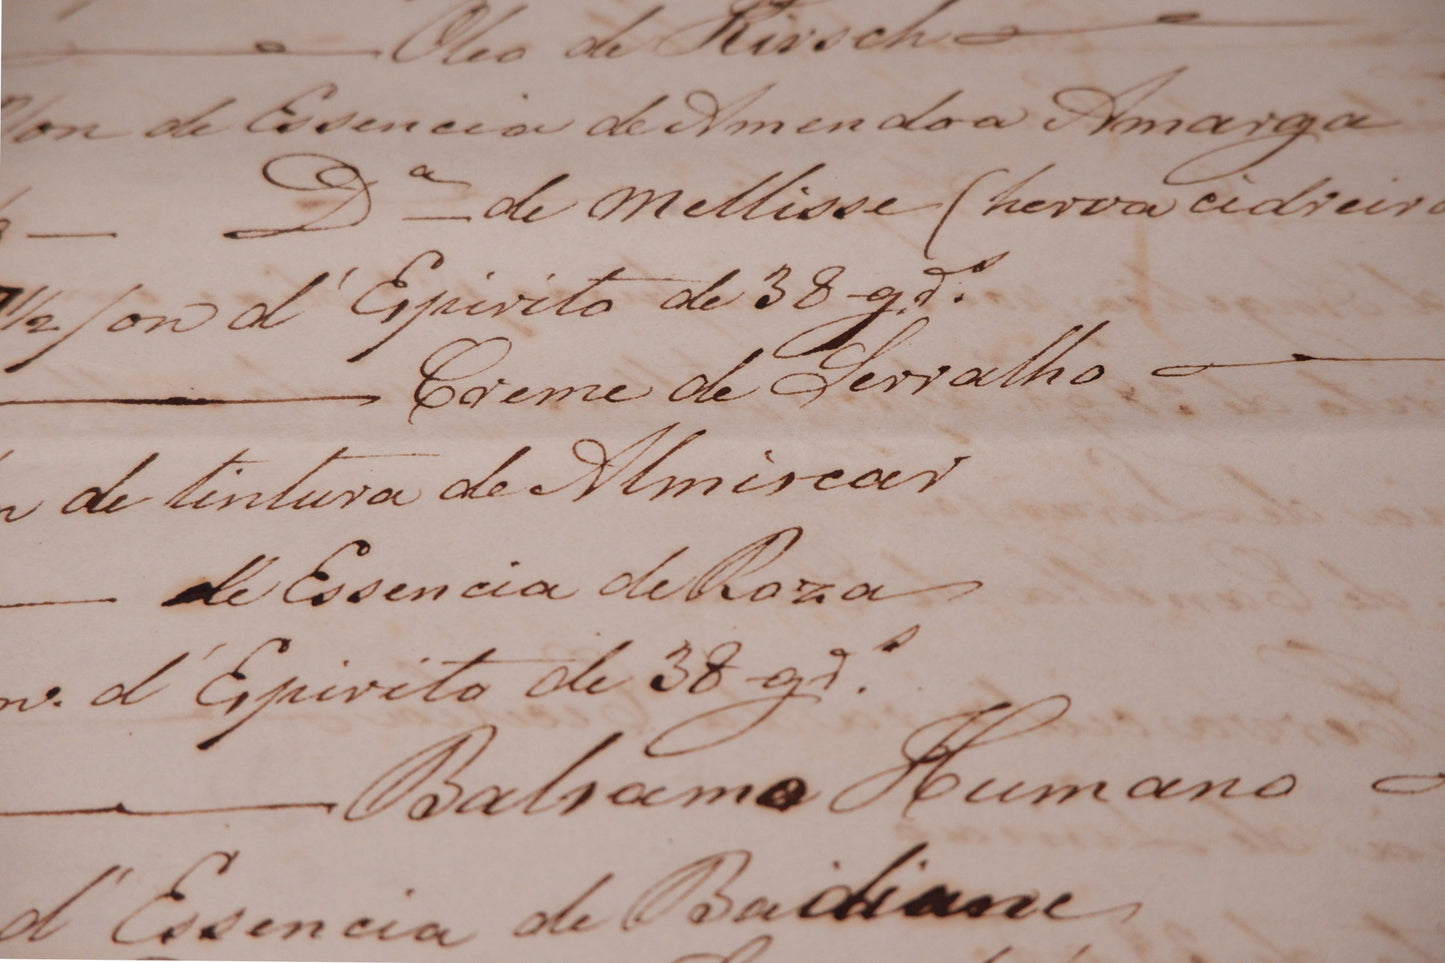 Oleo de Kirsch
on de Essencia de Amendoa Amarga
Dª de Mellisse (herva cidreira
7 1/2 /on d'Espirito de 38 gd.s
Creme de Serralho
de tintura de Almiscar
de Essencia de Roza
d'Espirito de 38 gd.s
Balsamo Humano
d'Essencia de Badiane